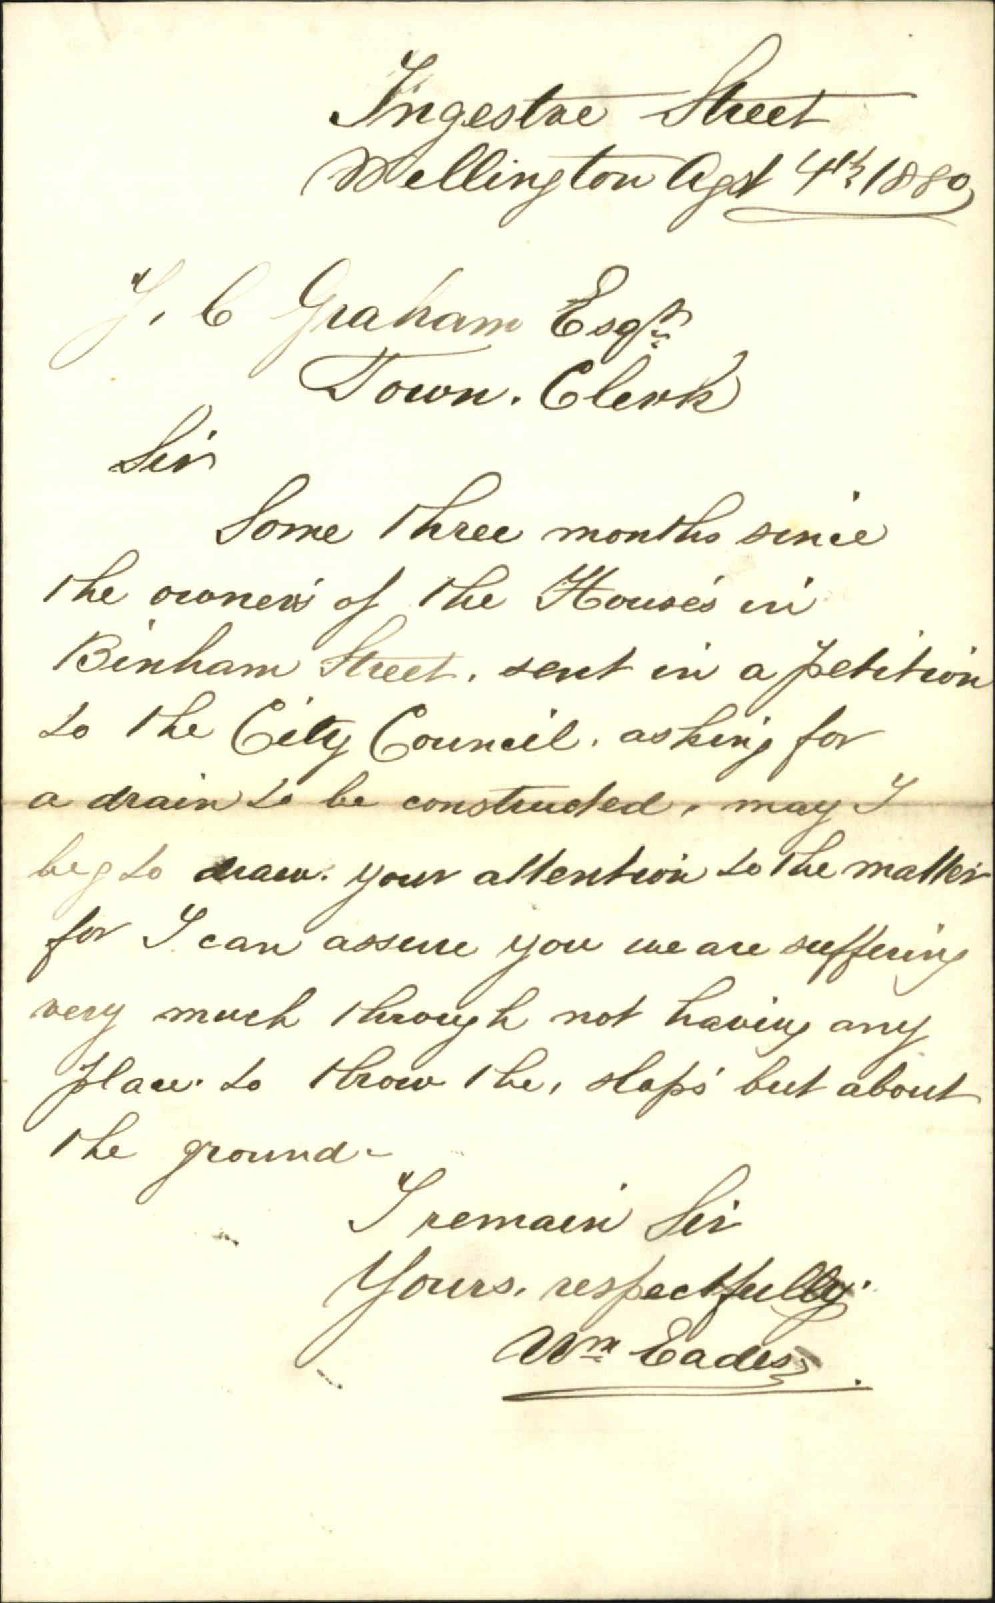 Ingestre Street
Wellington Agst 4th 1880
J. C Graham Esqr
Town. Clerk
Sir
Some three months since
the owner's of the House's in
Binham Street. sent in a petition
to the City Council. asking for
a drain to be constructed, may I
beg to draw. your attention to the matter
for I can assure you we are suffering
very much through not having any
place. to throw the, slop's but about
the ground-
I remain Sir
Yours. respectfully.
Wm Eades